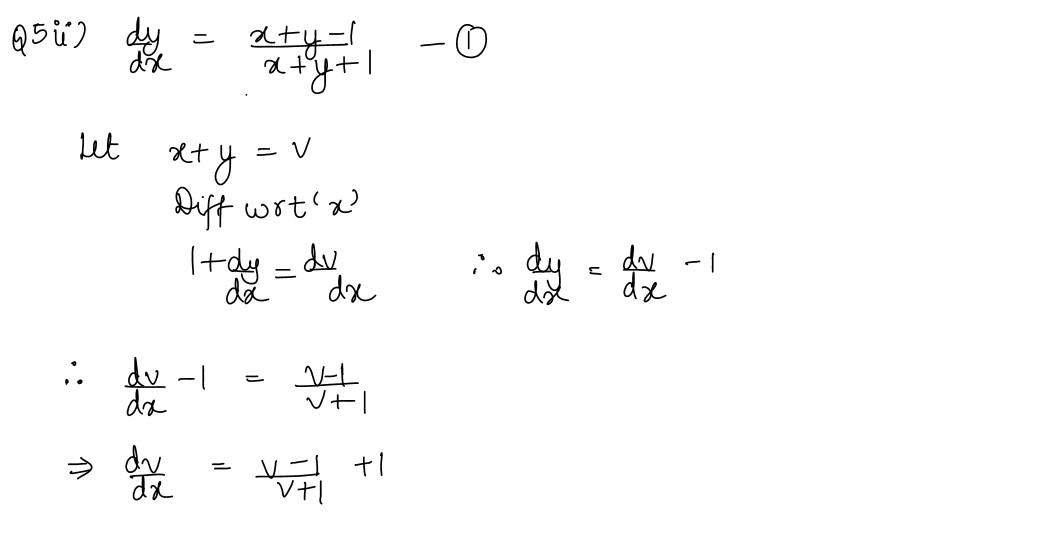 Q5ii) dy/dx = x+y-1/x+y+1 - ①
Let x+y = v
Diff wrt 'x'
1+dy/dx = dv/dx ∴ dy/dx = dv/dx -1
∴ dv/dx -1 = v-1/v+1
⇒ dv/dx = v-1/v+1 +1